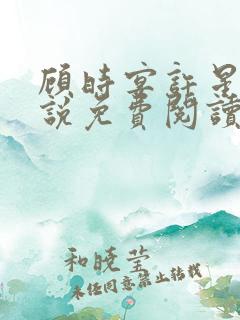 顾时宴許星
說免費閱讀
和晓莹
未经同意禁止转载